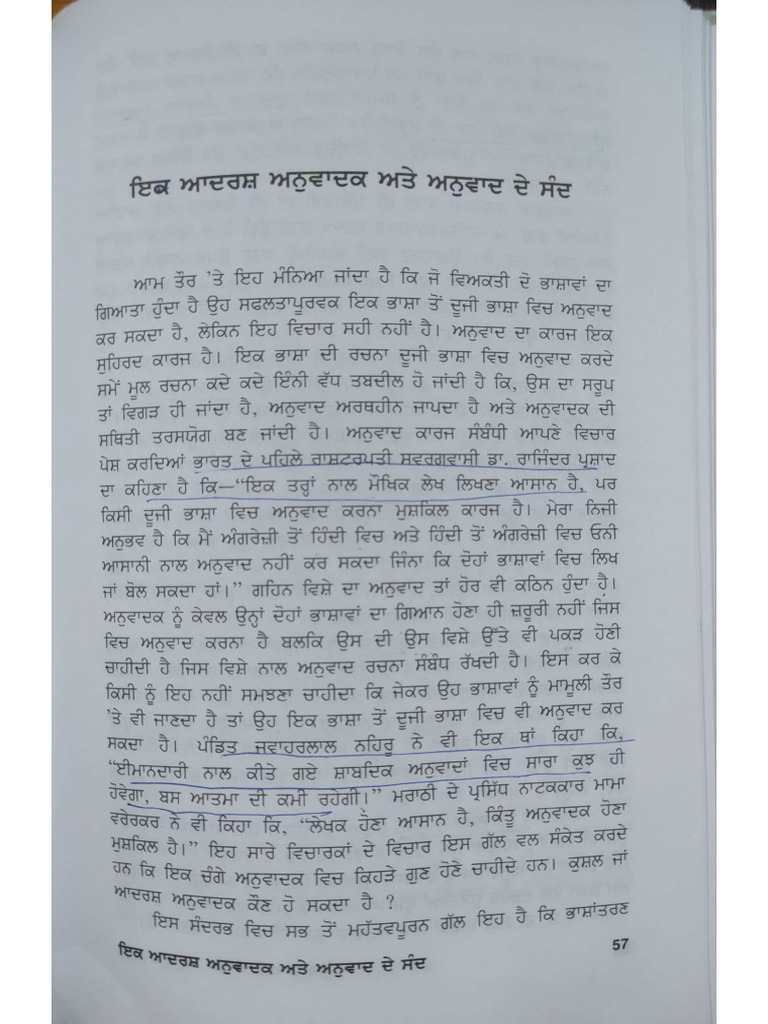 ਇਕ ਆਦਰਸ਼ ਅਨੁਵਾਦਕ ਅਤੇ ਅਨੁਵਾਦ ਦੇ ਸੰਦ
ਆਮ ਤੌਰ 'ਤੇ ਇਹ ਮੰਨਿਆ ਜਾਂਦਾ ਹੈ ਕਿ ਜੋ ਵਿਅਕਤੀ ਦੋ ਭਾਸ਼ਾਵਾਂ ਦਾ
ਗਿਆਤਾ ਹੁੰਦਾ ਹੈ ਉਹ ਸਫਲਤਾਪੂਰਵਕ ਇਕ ਭਾਸ਼ਾ ਤੋਂ ਦੂਜੀ ਭਾਸ਼ਾ ਵਿਚ ਅਨੁਵਾਦ
ਕਰ ਸਕਦਾ ਹੈ, ਲੇਕਿਨ ਇਹ ਵਿਚਾਰ ਸਹੀ ਨਹੀਂ ਹੈ। ਅਨੁਵਾਦ ਦਾ ਕਾਰਜ ਇਕ
ਸੁਹਿਰਦ ਕਾਰਜ ਹੈ। ਇਕ ਭਾਸ਼ਾ ਦੀ ਰਚਨਾ ਦੂਜੀ ਭਾਸ਼ਾ ਵਿਚ ਅਨੁਵਾਦ ਕਰਦੇ
ਸਮੇਂ ਮੂਲ ਰਚਨਾ ਕਦੇ ਕਦੇ ਇੰਨੀ ਵੱਧ ਤਬਦੀਲ ਹੋ ਜਾਂਦੀ ਹੈ ਕਿ, ਉਸ ਦਾ ਸਰੂਪ
ਤਾਂ ਵਿਗੜ ਹੀ ਜਾਂਦਾ ਹੈ, ਅਨੁਵਾਦ ਅਰਥਹੀਨ ਜਾਪਦਾ ਹੈ ਅਤੇ ਅਨੁਵਾਦਕ ਦੀ
ਸਥਿਤੀ ਤਰਸਯੋਗ ਬਣ ਜਾਂਦੀ ਹੈ। ਅਨੁਵਾਦ ਕਾਰਜ ਸੰਬੰਧੀ ਆਪਣੇ ਵਿਚਾਰ
ਪੇਸ਼ ਕਰਦਿਆਂ ਭਾਰਤ ਦੇ ਪਹਿਲੇ ਰਾਸ਼ਟਰਪਤੀ ਸਵਰਗਵਾਸੀ ਡਾ. ਰਾਜਿੰਦਰ ਪ੍ਰਸ਼ਾਦ
ਦਾ ਕਹਿਣਾ ਹੈ ਕਿ—“ਇਕ ਤਰ੍ਹਾਂ ਨਾਲ ਮੌਖਿਕ ਲੇਖ ਲਿਖਣਾ ਆਸਾਨ ਹੈ, ਪਰ
ਕਿਸੀ ਦੂਜੀ ਭਾਸ਼ਾ ਵਿਚ ਅਨੁਵਾਦ ਕਰਨਾ ਮੁਸ਼ਕਿਲ ਕਾਰਜ ਹੈ। ਮੇਰਾ ਨਿਜੀ
ਅਨੁਭਵ ਹੈ ਕਿ ਮੈਂ ਅੰਗਰੇਜ਼ੀ ਤੋਂ ਹਿੰਦੀ ਵਿਚ ਅਤੇ ਹਿੰਦੀ ਤੋਂ ਅੰਗਰੇਜ਼ੀ ਵਿਚ ਓਨੀ
ਆਸਾਨੀ ਨਾਲ ਅਨੁਵਾਦ ਨਹੀਂ ਕਰ ਸਕਦਾ ਜਿੰਨਾ ਕਿ ਦੋਹਾਂ ਭਾਸ਼ਾਵਾਂ ਵਿਚ ਲਿਖ
ਜਾਂ ਬੋਲ ਸਕਦਾ ਹਾਂ।” ਗਹਿਨ ਵਿਸ਼ੇ ਦਾ ਅਨੁਵਾਦ ਤਾਂ ਹੋਰ ਵੀ ਕਠਿਨ ਹੁੰਦਾ ਹੈ।
ਅਨੁਵਾਦਕ ਨੂੰ ਕੇਵਲ ਉਨ੍ਹਾਂ ਦੋਹਾਂ ਭਾਸ਼ਾਵਾਂ ਦਾ ਗਿਆਨ ਹੋਣਾ ਹੀ ਜ਼ਰੂਰੀ ਨਹੀਂ ਜਿਸ
ਵਿਚ ਅਨੁਵਾਦ ਕਰਨਾ ਹੈ ਬਲਕਿ ਉਸ ਦੀ ਉਸ ਵਿਸ਼ੇ ਉੱਤੇ ਵੀ ਪਕੜ ਹੋਣੀ
ਚਾਹੀਦੀ ਹੈ ਜਿਸ ਵਿਸ਼ੇ ਨਾਲ ਅਨੁਵਾਦ ਰਚਨਾ ਸੰਬੰਧ ਰੱਖਦੀ ਹੈ। ਇਸ ਕਰ ਕੇ
ਕਿਸੀ ਨੂੰ ਇਹ ਨਹੀਂ ਸਮਝਣਾ ਚਾਹੀਦਾ ਕਿ ਜੇਕਰ ਉਹ ਭਾਸ਼ਾਵਾਂ ਨੂੰ ਮਾਮੂਲੀ ਤੌਰ
'ਤੇ ਵੀ ਜਾਣਦਾ ਹੈ ਤਾਂ ਉਹ ਇਕ ਭਾਸ਼ਾ ਤੋਂ ਦੂਜੀ ਭਾਸ਼ਾ ਵਿਚ ਵੀ ਅਨੁਵਾਦ ਕਰ
ਸਕਦਾ ਹੈ। ਪੰਡਿਤ ਜਵਾਹਰਲਾਲ ਨਹਿਰੂ ਨੇ ਵੀ ਇਕ ਥਾਂ ਕਿਹਾ ਕਿ,
“ਈਮਾਨਦਾਰੀ ਨਾਲ ਕੀਤੇ ਗਏ ਸ਼ਾਬਦਿਕ ਅਨੁਵਾਦਾਂ ਵਿਚ ਸਾਰਾ ਕੁਝ ਹੀ
ਹੋਵੇਗਾ, ਬਸ ਆਤਮਾ ਦੀ ਕਮੀ ਰਹੇਗੀ।” ਮਰਾਠੀ ਦੇ ਪ੍ਰਸਿੱਧ ਨਾਟਕਕਾਰ ਮਾਮਾ
ਵਰੇਰਕਰ ਨੇ ਵੀ ਕਿਹਾ ਕਿ, “ਲੇਖਕ ਹੋਣਾ ਆਸਾਨ ਹੈ, ਕਿੰਤੂ ਅਨੁਵਾਦਕ ਹੋਣਾ
ਮੁਸ਼ਕਿਲ ਹੈ।” ਇਹ ਸਾਰੇ ਵਿਚਾਰਕਾਂ ਦੇ ਵਿਚਾਰ ਇਸ ਗੱਲ ਵਲ ਸੰਕੇਤ ਕਰਦੇ
ਹਨ ਕਿ ਇਕ ਚੰਗੇ ਅਨੁਵਾਦਕ ਵਿਚ ਕਿਹੜੇ ਗੁਣ ਹੋਣੇ ਚਾਹੀਦੇ ਹਨ। ਕੁਸ਼ਲ ਜਾਂ
ਆਦਰਸ਼ ਅਨੁਵਾਦਕ ਕੌਣ ਹੋ ਸਕਦਾ ਹੈ ?
ਇਸ ਸੰਦਰਭ ਵਿਚ ਸਭ ਤੋਂ ਮਹੱਤਵਪੂਰਨ ਗੱਲ ਇਹ ਹੈ ਕਿ ਭਾਸ਼ਾਂਤਰਣ
ਇਕ ਆਦਰਸ਼ ਅਨੁਵਾਦਕ ਅਤੇ ਅਨੁਵਾਦ ਦੇ ਸੰਦ 57